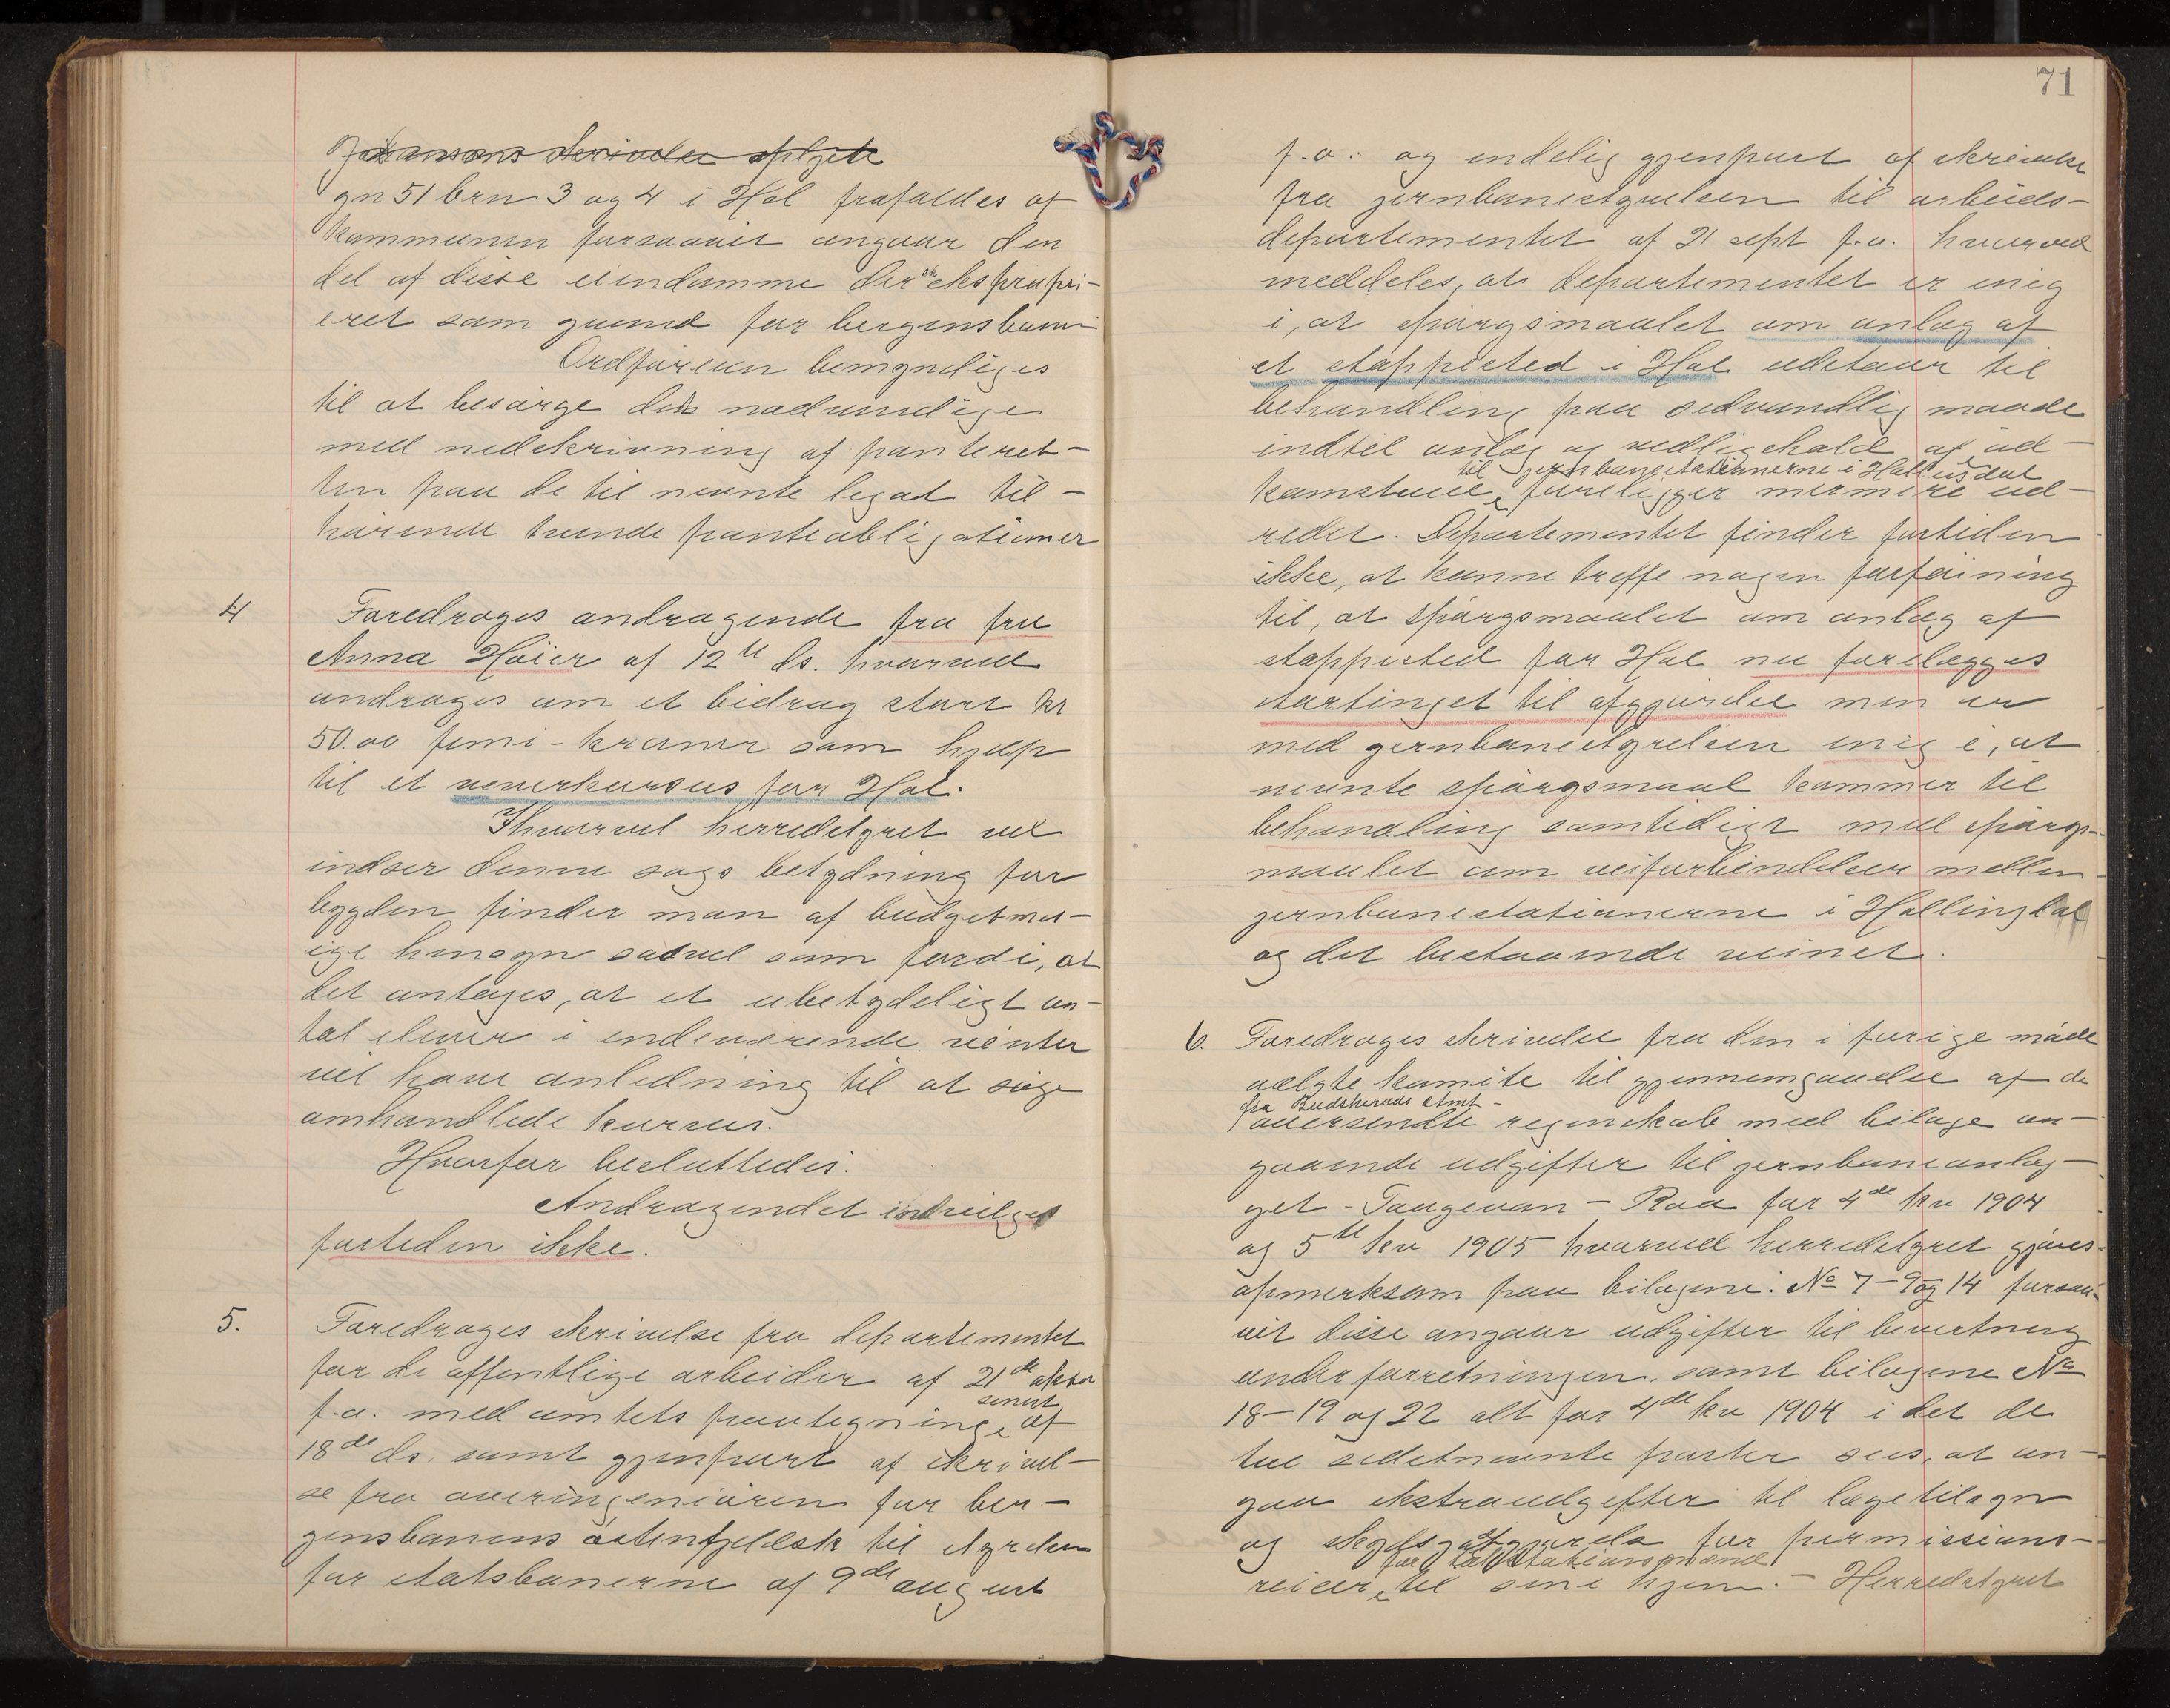 gn 51 brn 3 og 4 i Hol frafaldes af
kommunen forsaavit angaar den
del af disse eiendomme der er ekspropri-
eret som grund for bergensbanen
Ordføreren bemyndiges
til at besørge det nødvendige
med nedskrivning af panteret-
ten paa de til nevnte legat til-
hørende tvende panteobligationer
4 Foredroges andragende fra fru
Anna Høier af 12te ds. hvorved
andrages om et bidrag stort kr
50.00 femti-kroner som hjælp
til et veverkursus for Hol.
Ihvorvel herredstyret vel
indser denne sags betydning for
bygden finder man af budgetmes-
ige hensyn saavel som fordi, at
det antages, at et ubetydeligt an-
tal elever i indeværende vinter
vil have anledning til at søge
omhandlede kursus.
Hvorfor besluttedes:
Andragendet indvilges
fortiden ikke.
5. Foredroges skrivelse fra departementet
for de offentlige arbeider af 21de oktbr
f.a. med amtets paategning senest af
18de ds. samt gjenpart af skrivel-
se fra overingeniøren for ber-
gensbanens østenfjeldsk til styrelsen
for statsbanerne af 9de august
71
f.a. og endelig gjenpart af skrivelse
fra jernbanestyrelsen til arbeids-
departementet af 21 sept f.a. hvorved
meddeles, at departementet er enig
i, at spørgsmaalet om anlæg af
et stoppested i Hol udstaar til
behandling paa sedvandlig maade
indtil anlæg og vedligehold af ad-
komstveie til jernbanestationerne i Hallingdal foreligger nermere ud-
redet. Departementet finder fortiden
ikke, at kunne treffe nogen forføining
til, at spørgsmaalet om anlæg af
stoppested for Hol nu forelægges
stortinget til afgjørelse men er
med jernbanestyrelsen enig i, at
nevnte spørgsmaal kommer til
behandling samtidigt med spørgs-
maalet om veiforbindelsen mellem
jernbanestationerne i Hallingdal
og det bestaaende veinet.
6. Foredroges skrivelse fra den i forige møde
valgte komite til gjennemgaaelse af de
fra Buskeruds Amt
oversendte regnskab med bilage an-
gaaende udgifter til jernbaneanlæg-
get - Taugevan - Roa for 4de kv 1904
og 5te kv 1905 hvorved herredstyret gjøres
opmerksom paa bilagene: No 7-9 og 14 forsaa-
vit disse angaar udgifter til bevertning
under forretningen, samt bilagene No
18-19 og 22 alt for 4de kv 1904 i det de
tre sidstnevnte poster sees, at an-
gaa ekstraudgifter til lægetilsyn
og skydsgodtgjørelse for permissions-
reiser for til sine hjem. - Herredstyret